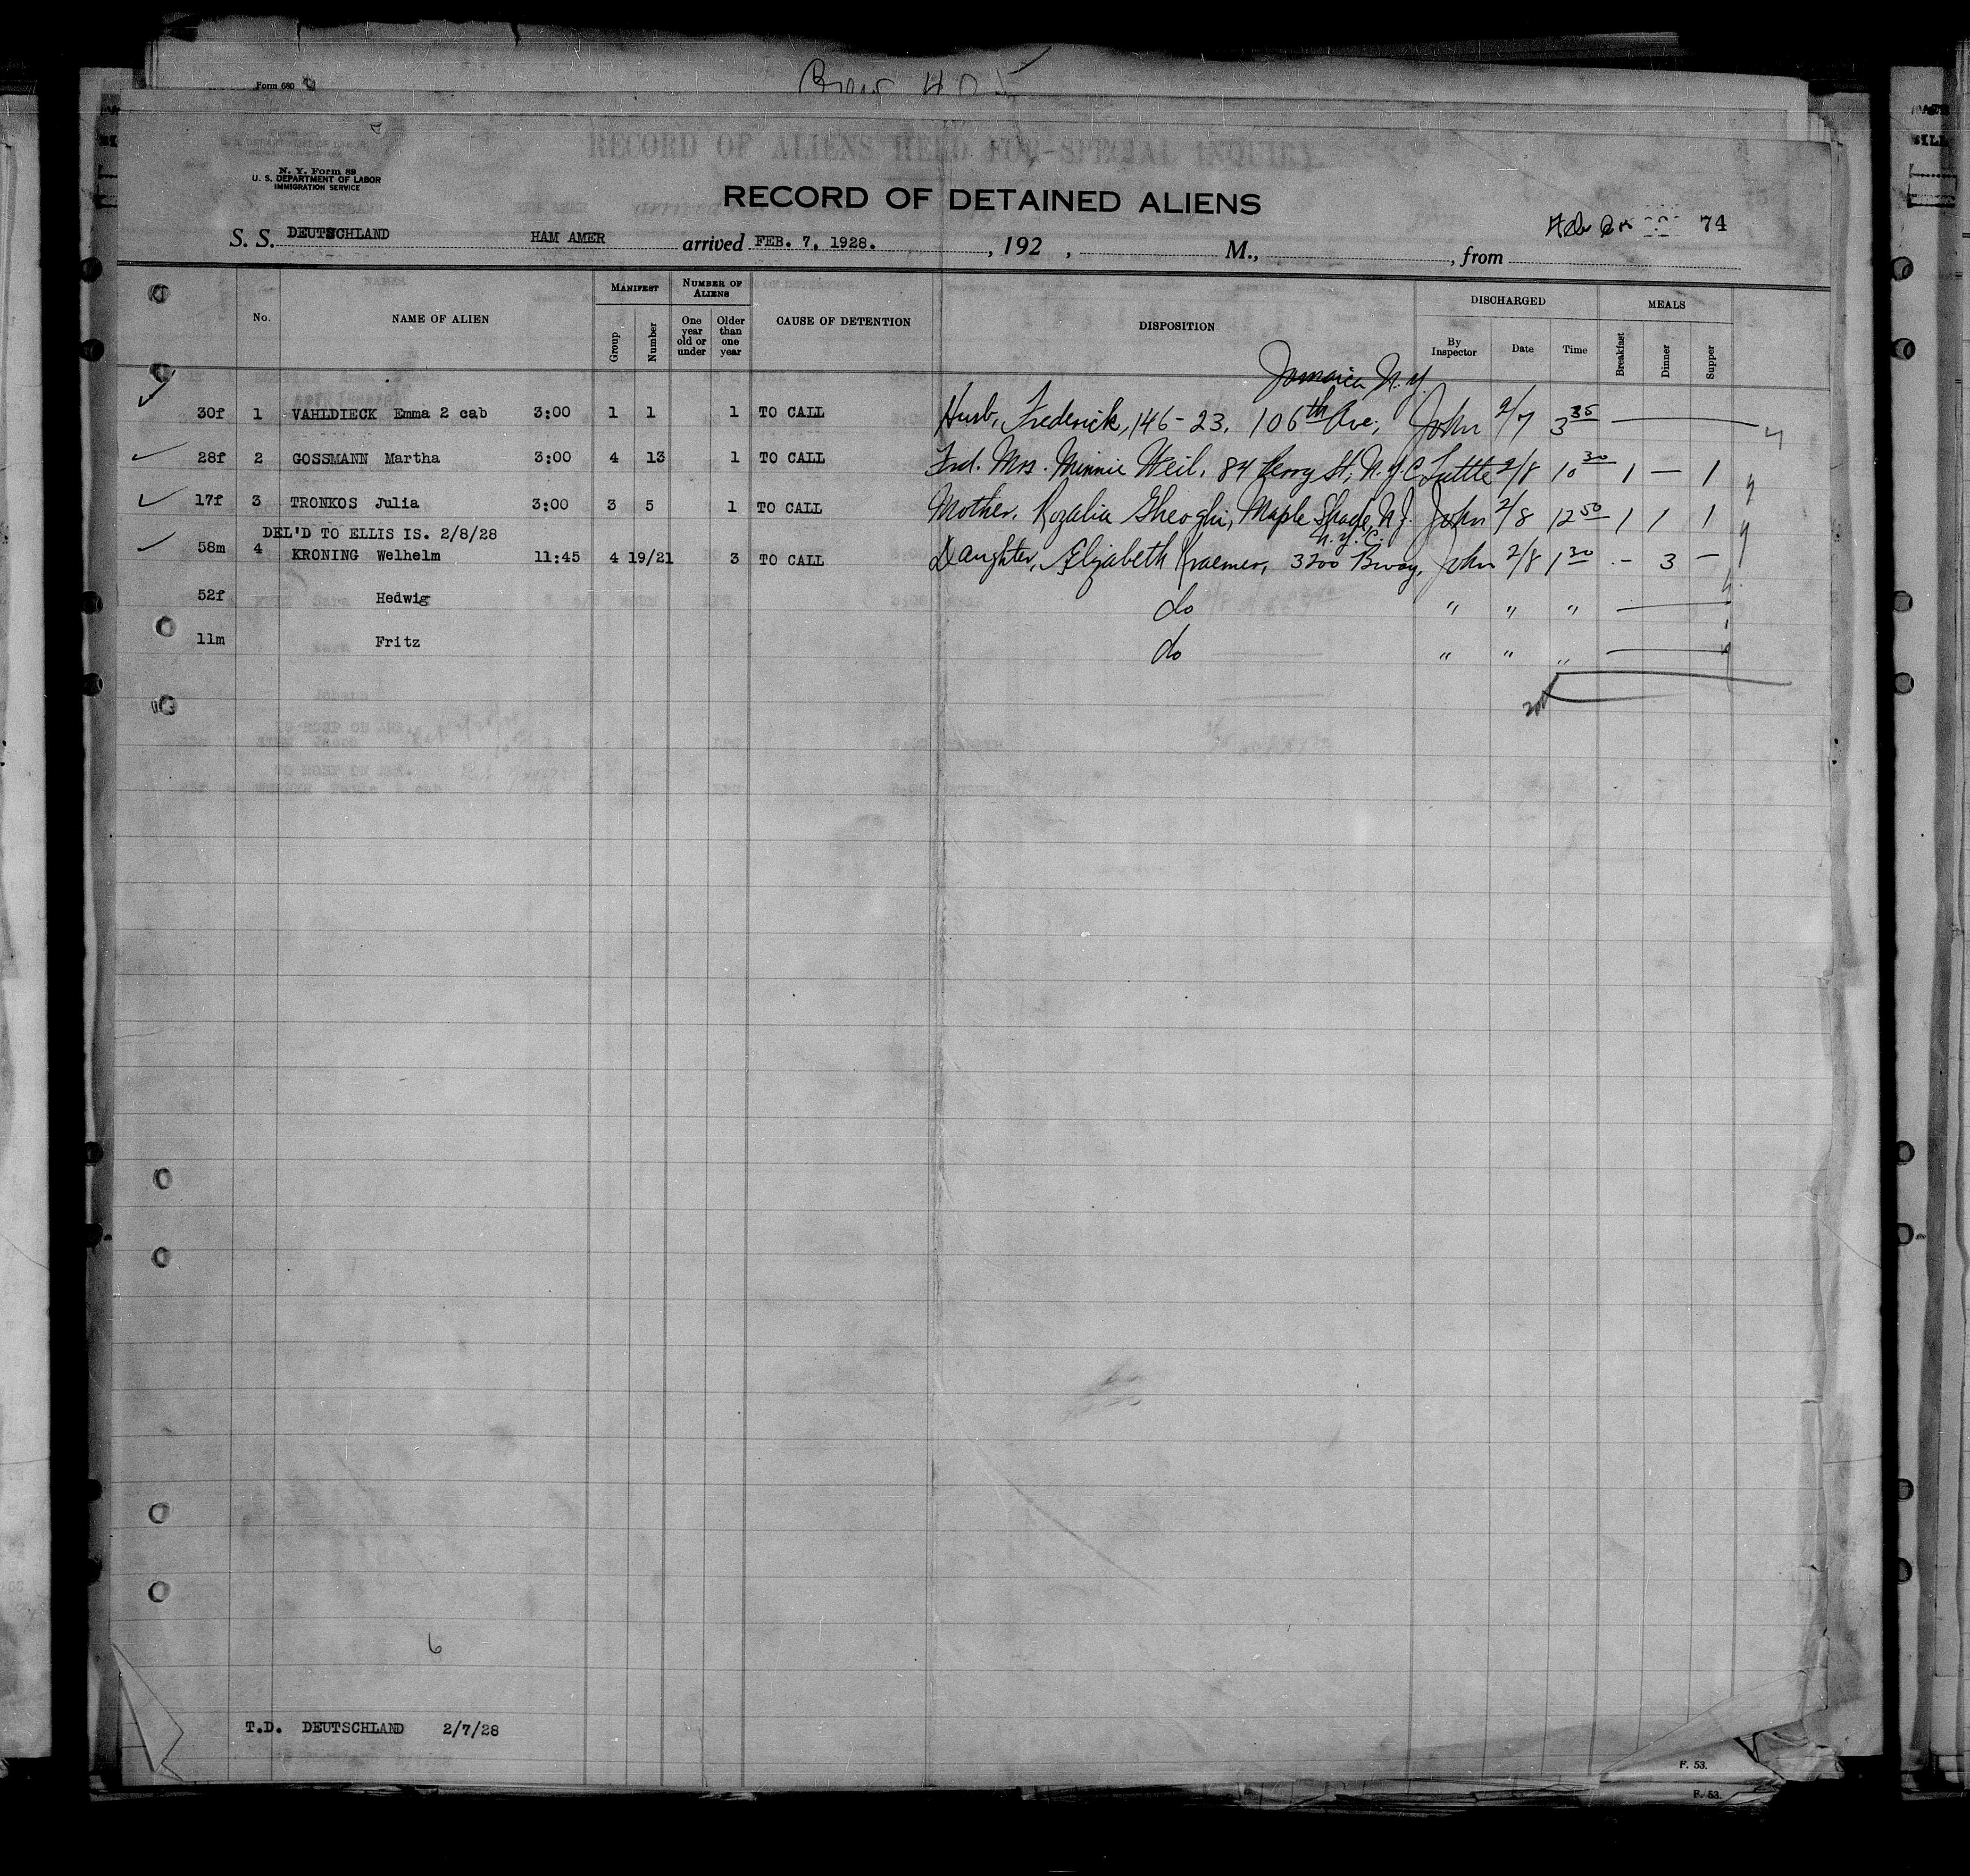 Form 680
RECORD OF ALIENS HELD FOR SPECIAL INQUIRY
N. Y. Form 89
U. S. DEPARTMENT OF LABOR
IMMIGRATION SERVICE
RECORD OF DETAINED ALIENS
74
S. S. DEUTSCHLAND HAM AMER arrived FEB. 7, 1928. , 192 , M., , from
No. NAME OF ALIEN MANIFEST Group Number NUMBER OF ALIENS One year old or under Older than one year CAUSE OF DETENTION DISPOSITION DISCHARGED By Inspector Date Time MEALS Breakfast Dinner Supper
Jamaica N.Y.
30f 1 VAHLDIECK Emma 2 cab 3:00 1 1 1 TO CALL Husb, Frederick, 146-23, 106th Ave, John 2/7 3 35
28f 2 GOSSMANN Martha 3:00 4 13 1 TO CALL Frd. Mrs. Minnie Weil, 84 Perry St, N.Y.C. Tuttle 2/8 10 30 1 — 1
17f 3 TRONKOS Julia 3:00 3 5 1 TO CALL Mother, Rozalia Gheoghi, Maple Shade, N.J. John 2/8 12 50 1 1 1
DEL'D TO ELLIS IS. 2/8/28 N.Y.C.
58m 4 KRONING Welhelm 11:45 4 19/21 3 TO CALL Daughter, Elizabeth Kraemer, 3200 Bway, John 2/8 1 30 - 3 -
52f Hedwig do " " "
11m Fritz do " " "
6
T.D. DEUTSCHLAND 2/7/28
F. 53.
F. 53.